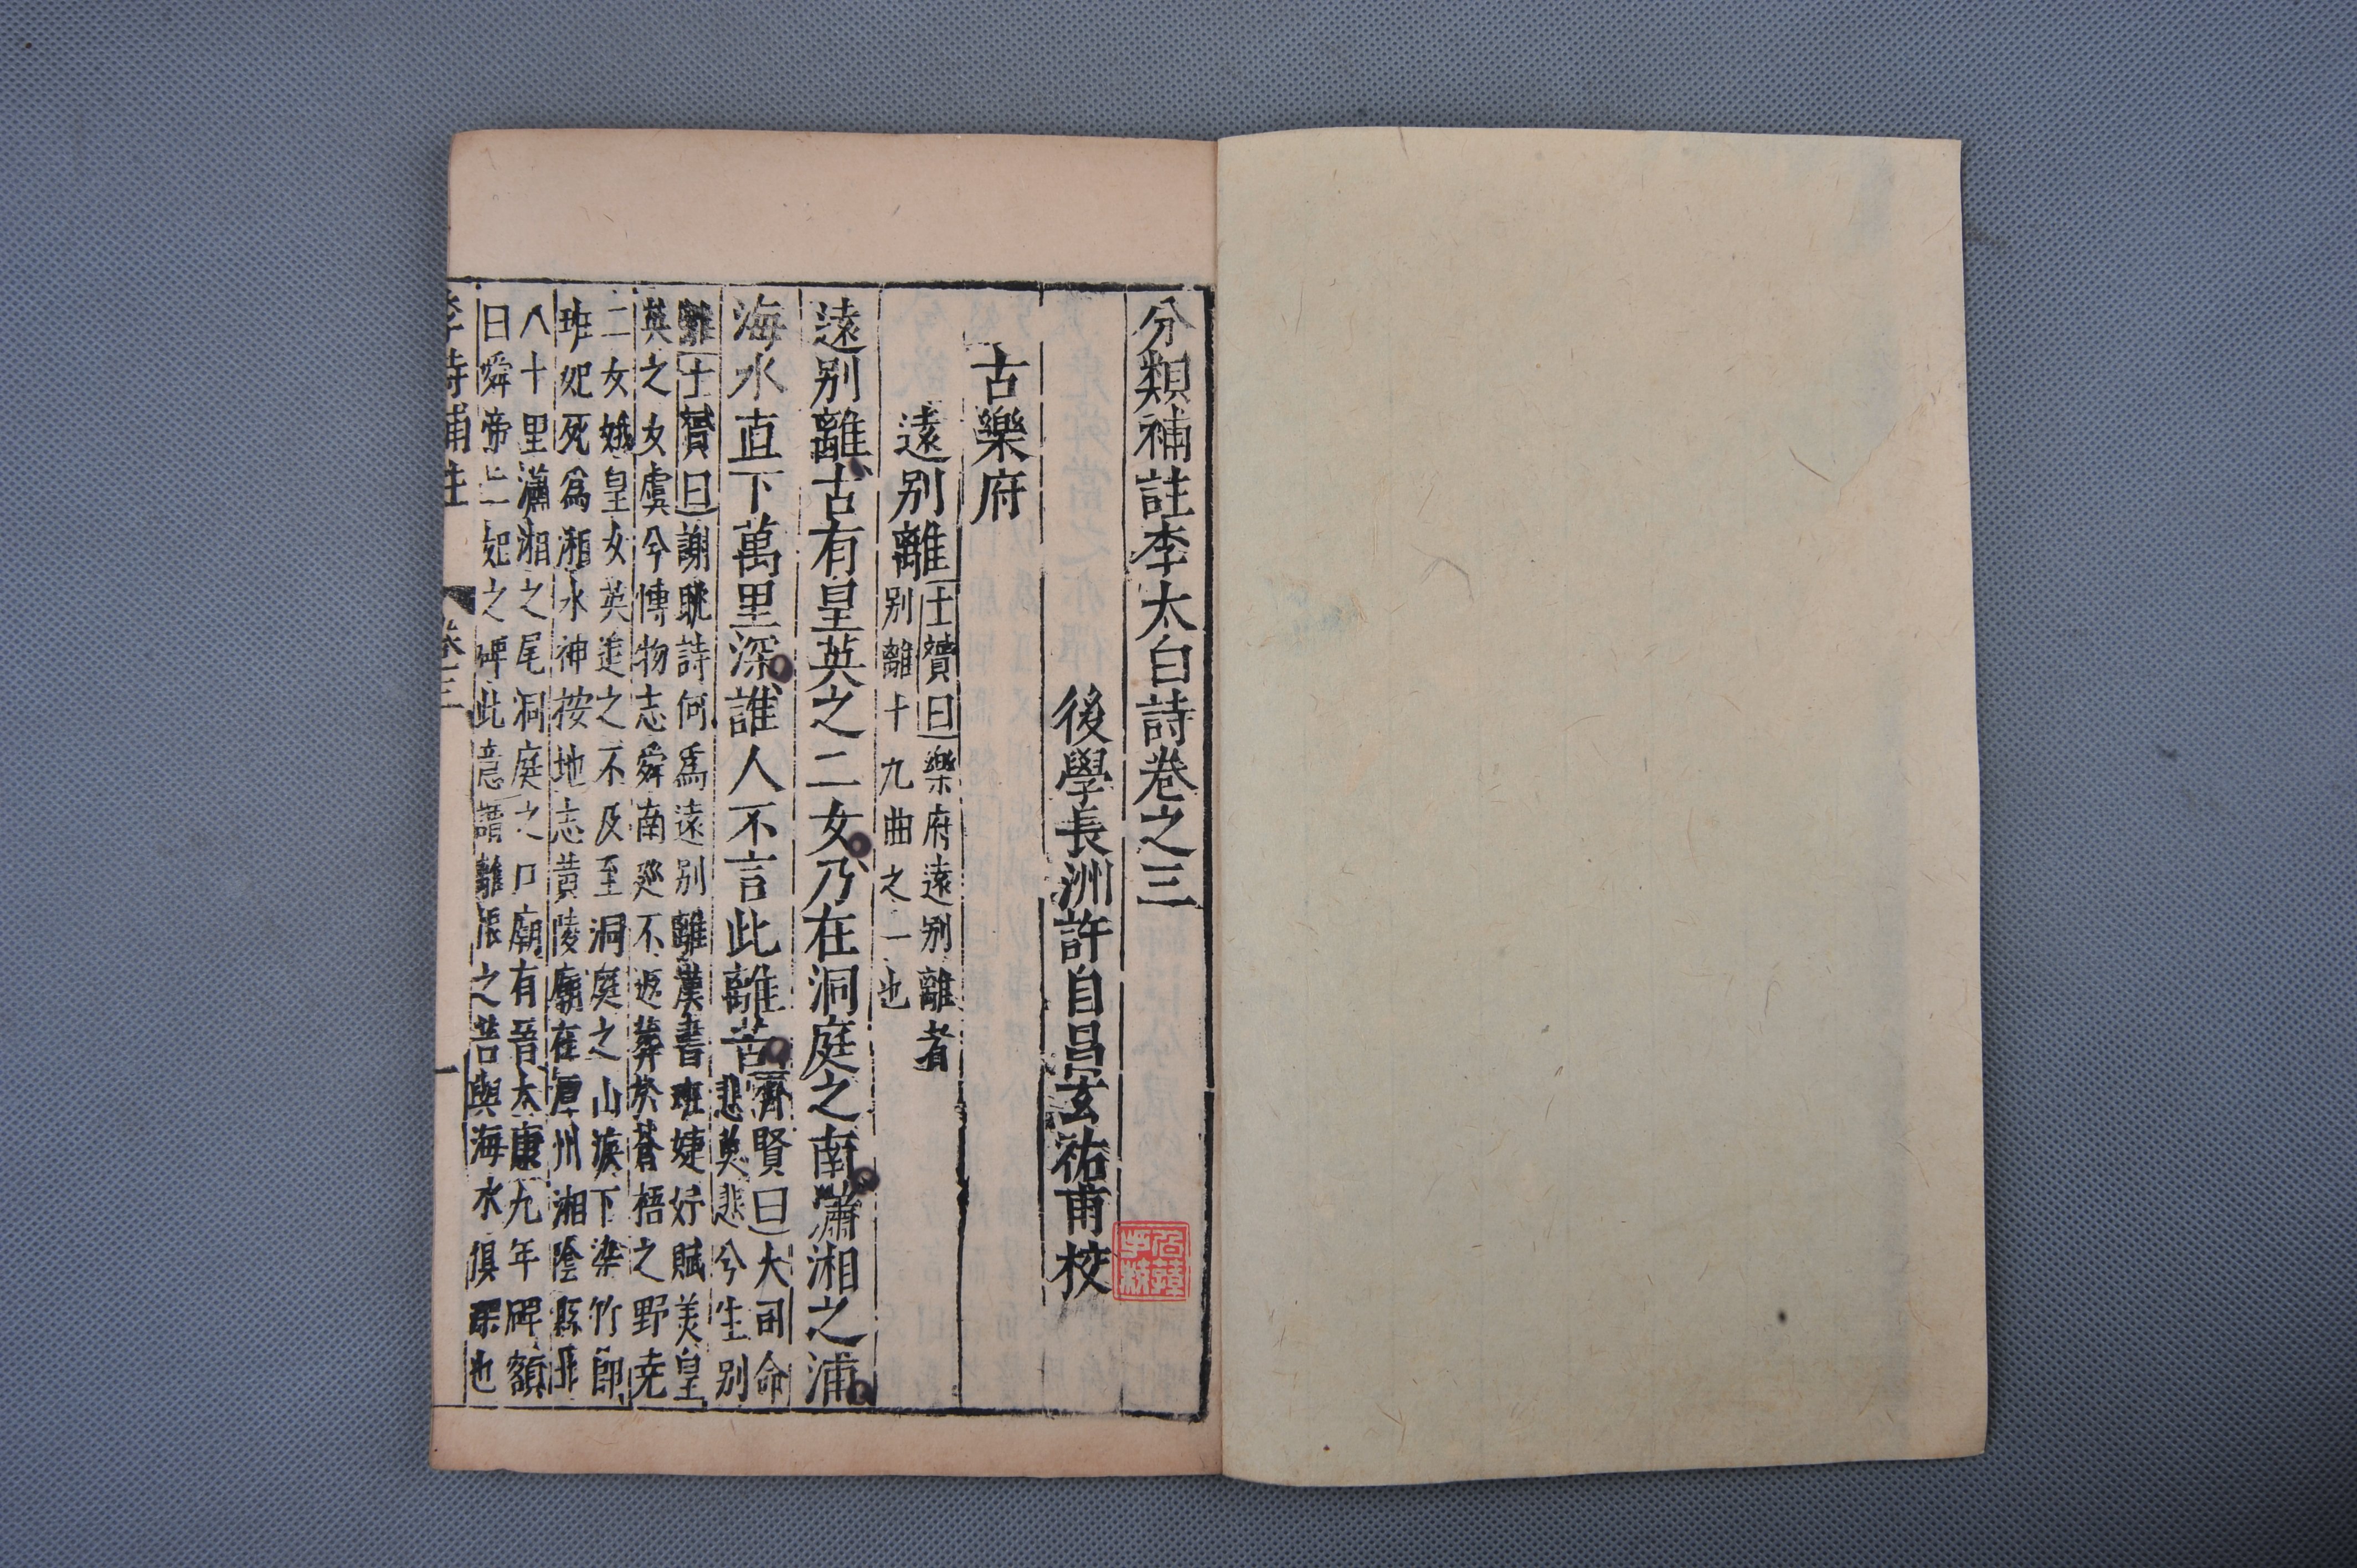 分類補註李太白詩卷之三
後學長洲許自昌玄祐甫校
古樂府
遠別離
士贇曰樂府遠別離者
別離十九曲之一也
遠別離古有皇英之二女乃在洞庭之南瀟湘之浦
海水直下萬里深誰人不言此離苦
齊賢曰大司命
悲莫悲兮生別
離士贇曰謝眺詩何爲遠別離漢書班婕妤賦美皇
英之女虞今愽物志舜南廵不返葬於蒼梧之野尭
二女娥皇女英追之不及至洞庭之山淚下染竹卽
班妃死爲湘水神按地志黃陵廟在潭州湘陰縣北
八十里瀟湘之尾洞庭之口廟有晉太康九年碑額
曰舜帝二妃之碑此意謂離悵之苦與海水俱深也
李詩補註
卷三
一